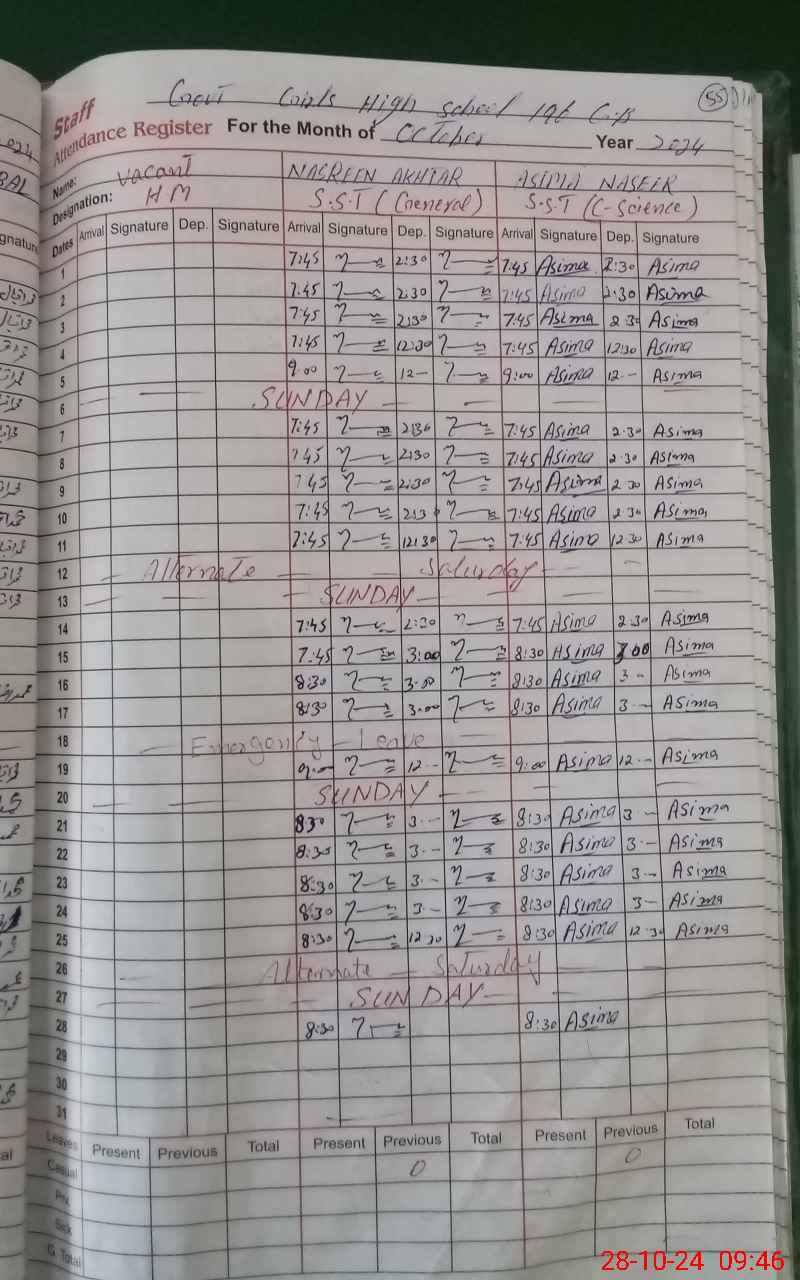 Govt Girls High School 196 G.B
55
Staff
Attendance Register For the Month of October Year 2024
Name: Vacant NASREEN AKHTAR ASIMA NASEER
Designation: HM S.S.T (General) S.S.T (C-Science)
Dates Arrival Signature Dep. Signature Arrival Signature Dep. Signature Arrival Signature Dep. Signature
1 7:45 2:30 7:45 Asima 2:30 Asima
2 7:45 2:30 7:45 Asima 2:30 Asima
3 7:45 2:30 7:45 Asima 2:30 Asima
4 7:45 12:30 7:45 Asima 12:30 Asima
5 9:00 12-- 9:00 Asima 12-- Asima
6 SUNDAY
7 7:45 2:30 7:45 Asima 2:30 Asima
8 7:45 2:30 7:45 Asima 2:30 Asima
9 7:45 2:30 7:45 Asima 2:30 Asima
10 7:45 2:30 7:45 Asima 2:30 Asima
11 7:45 12:30 7:45 Asima 12:30 Asima
12 Alternate Saturday
13 SUNDAY
14 7:45 2:30 7:45 Asima 2:30 Asima
15 7:45 3:00 8:30 Asima 3:00 Asima
16 8:30 3:00 8:30 Asima 3-- Asima
17 8:30 3:00 8:30 Asima 3-- Asima
18 Emergency Leave
19 9:00 12-- 9:00 Asima 12-- Asima
20 SUNDAY
21 8:30 3-- 8:30 Asima 3-- Asima
22 8:30 3-- 8:30 Asima 3-- Asima
23 8:30 3-- 8:30 Asima 3-- Asima
24 8:30 3-- 8:30 Asima 3-- Asima
25 8:30 12:30 8:30 Asima 12:30 Asima
26 Alternate Saturday
27 SUNDAY
28 8:30 8:30 Asima
29
30
31
Leaves Present Previous Total Present Previous Total Present Previous Total
Casual 0 0
Priv.
Sick
G. Total
28-10-24 09:46